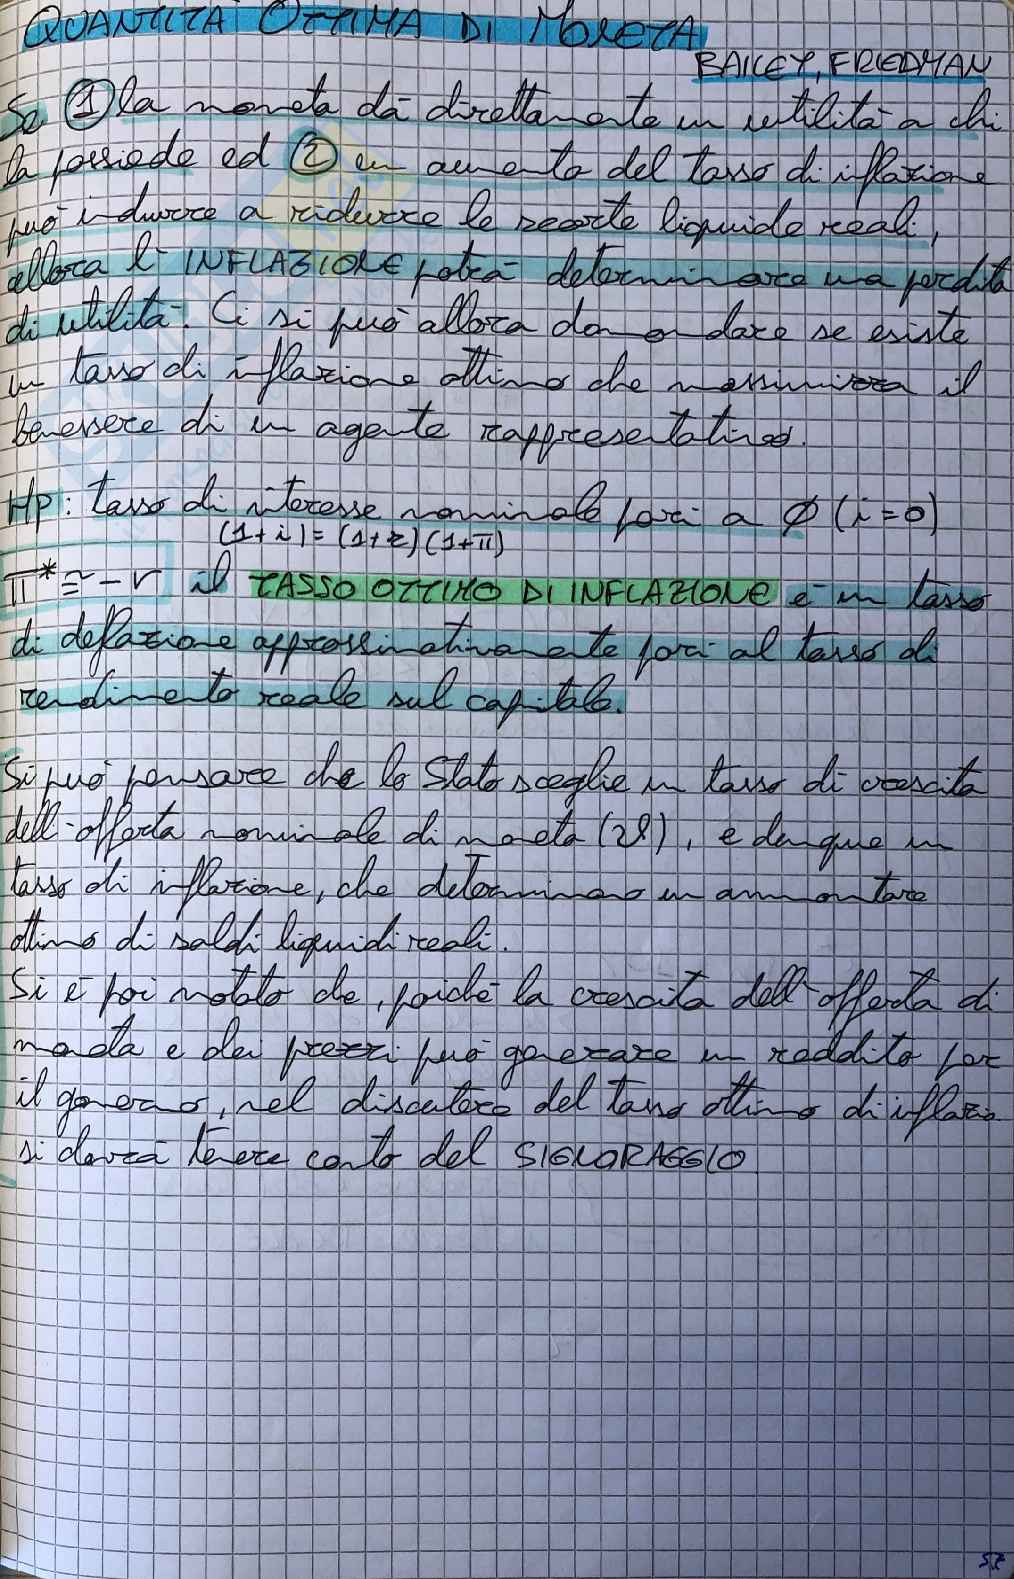 QUANTITÀ OTTIMA DI MONETA
BAILEY, FRIEDMAN
Se ① la moneta dà direttamente un utilità a chi
la possiede ed ② un aumento del tasso di inflazione
può indurre a ridurre le scorte liquide reali,
allora l' INFLAZIONE potrà determinare una perdita
di utilità. Ci si può allora domandare se esiste
un tasso di inflazione ottimo che massimizza il
benessere di un agente rappresentativo.
Hp: tasso di interesse nominale pari a ∅ (i=0)
(1+i)=(1+r)(1+π)
π* ≅ -r il TASSO OTTIMO DI INFLAZIONE è un tasso
di deflazione approssimativamente pari al tasso di
rendimento reale sul capitale.
Si può pensare che lo Stato sceglie un tasso di crescita
dell'offerta nominale di moneta, e dunque un
tasso di inflazione, che determinano un ammontare
ottimo di saldi liquidi reali.
Si è poi notato che, poichè la crescita dell'offerta di
moneta e dei prezzi può generare un reddito per
il governo, nel discutere del tasso ottimo di inflazio
si dovrà tenere conto del SIGNORAGGIO